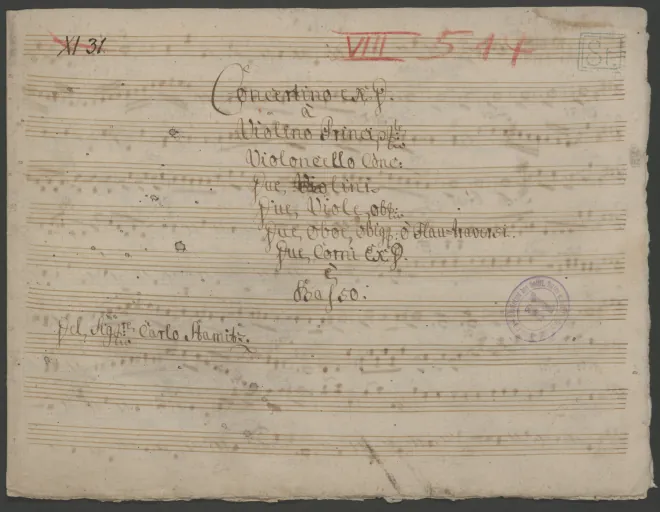 XI 31.
VIII 517
St.
Concertino ex F.
à
Violino Principle
Violoncello Conc:
Due, Violini.
Due, Viole, obl:
Due, Oboe, oblig: ò Flautraversi.
Due, Corni Ex F.
è
Basso.
Del, Sig: Carlo Stamitz.